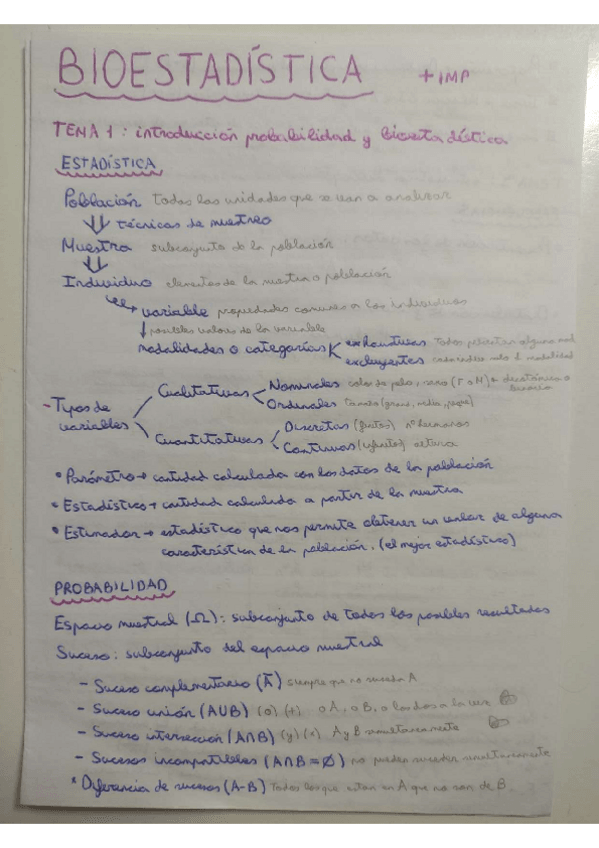 BIOESTADÍSTICA + IMP
TEMA 1: introducción probabilidad y bioestadística
ESTADÍSTICA
Población Todas las unidades que se van a analizar
técnicas de muestreo
Muestra subconjunto de la población
Individuo elementos de la muestra o población
variable propiedades comunes a los individuos
posibles valores de la variable
modalidades o categorías
exhaustivas Todos alguna
excluyentes cada individuo solo 1 modalidad
- Tipos de variables
Cualitativas
Nominales color de pelo, sexo (F o M) dicotómica o binaria
Ordinales tamaño (grand, median, peque)
Cuantitativas
Discretas (finitos) nº hermanos
Continuas (infinitos) altura
• Parámetro → cantidad calculada con los datos de la población
• Estadístico → cantidad calculada a partir de la muestra
• Estimador → estadístico que nos permite obtener un valor de alguna
característica de la población. (el mejor estadístico)
PROBABILIDAD
Espacio muestral (Ω): subconjunto de todos los posibles resultados
Suceso: subconjunto del espacio muestral
- Suceso complementario (Ā) siempre que no suceda A
- Suceso unión (A∪B) (o) (+) o A, o B, o los dos a la vez
- Suceso intersección (A∩B) (y) (x) A y B simultáneamente
- Sucesos incompatibles (A∩B = Ø) no pueden suceder simultáneamente
* Diferencia de sucesos (A-B) Todos los que están en A que no son de B.